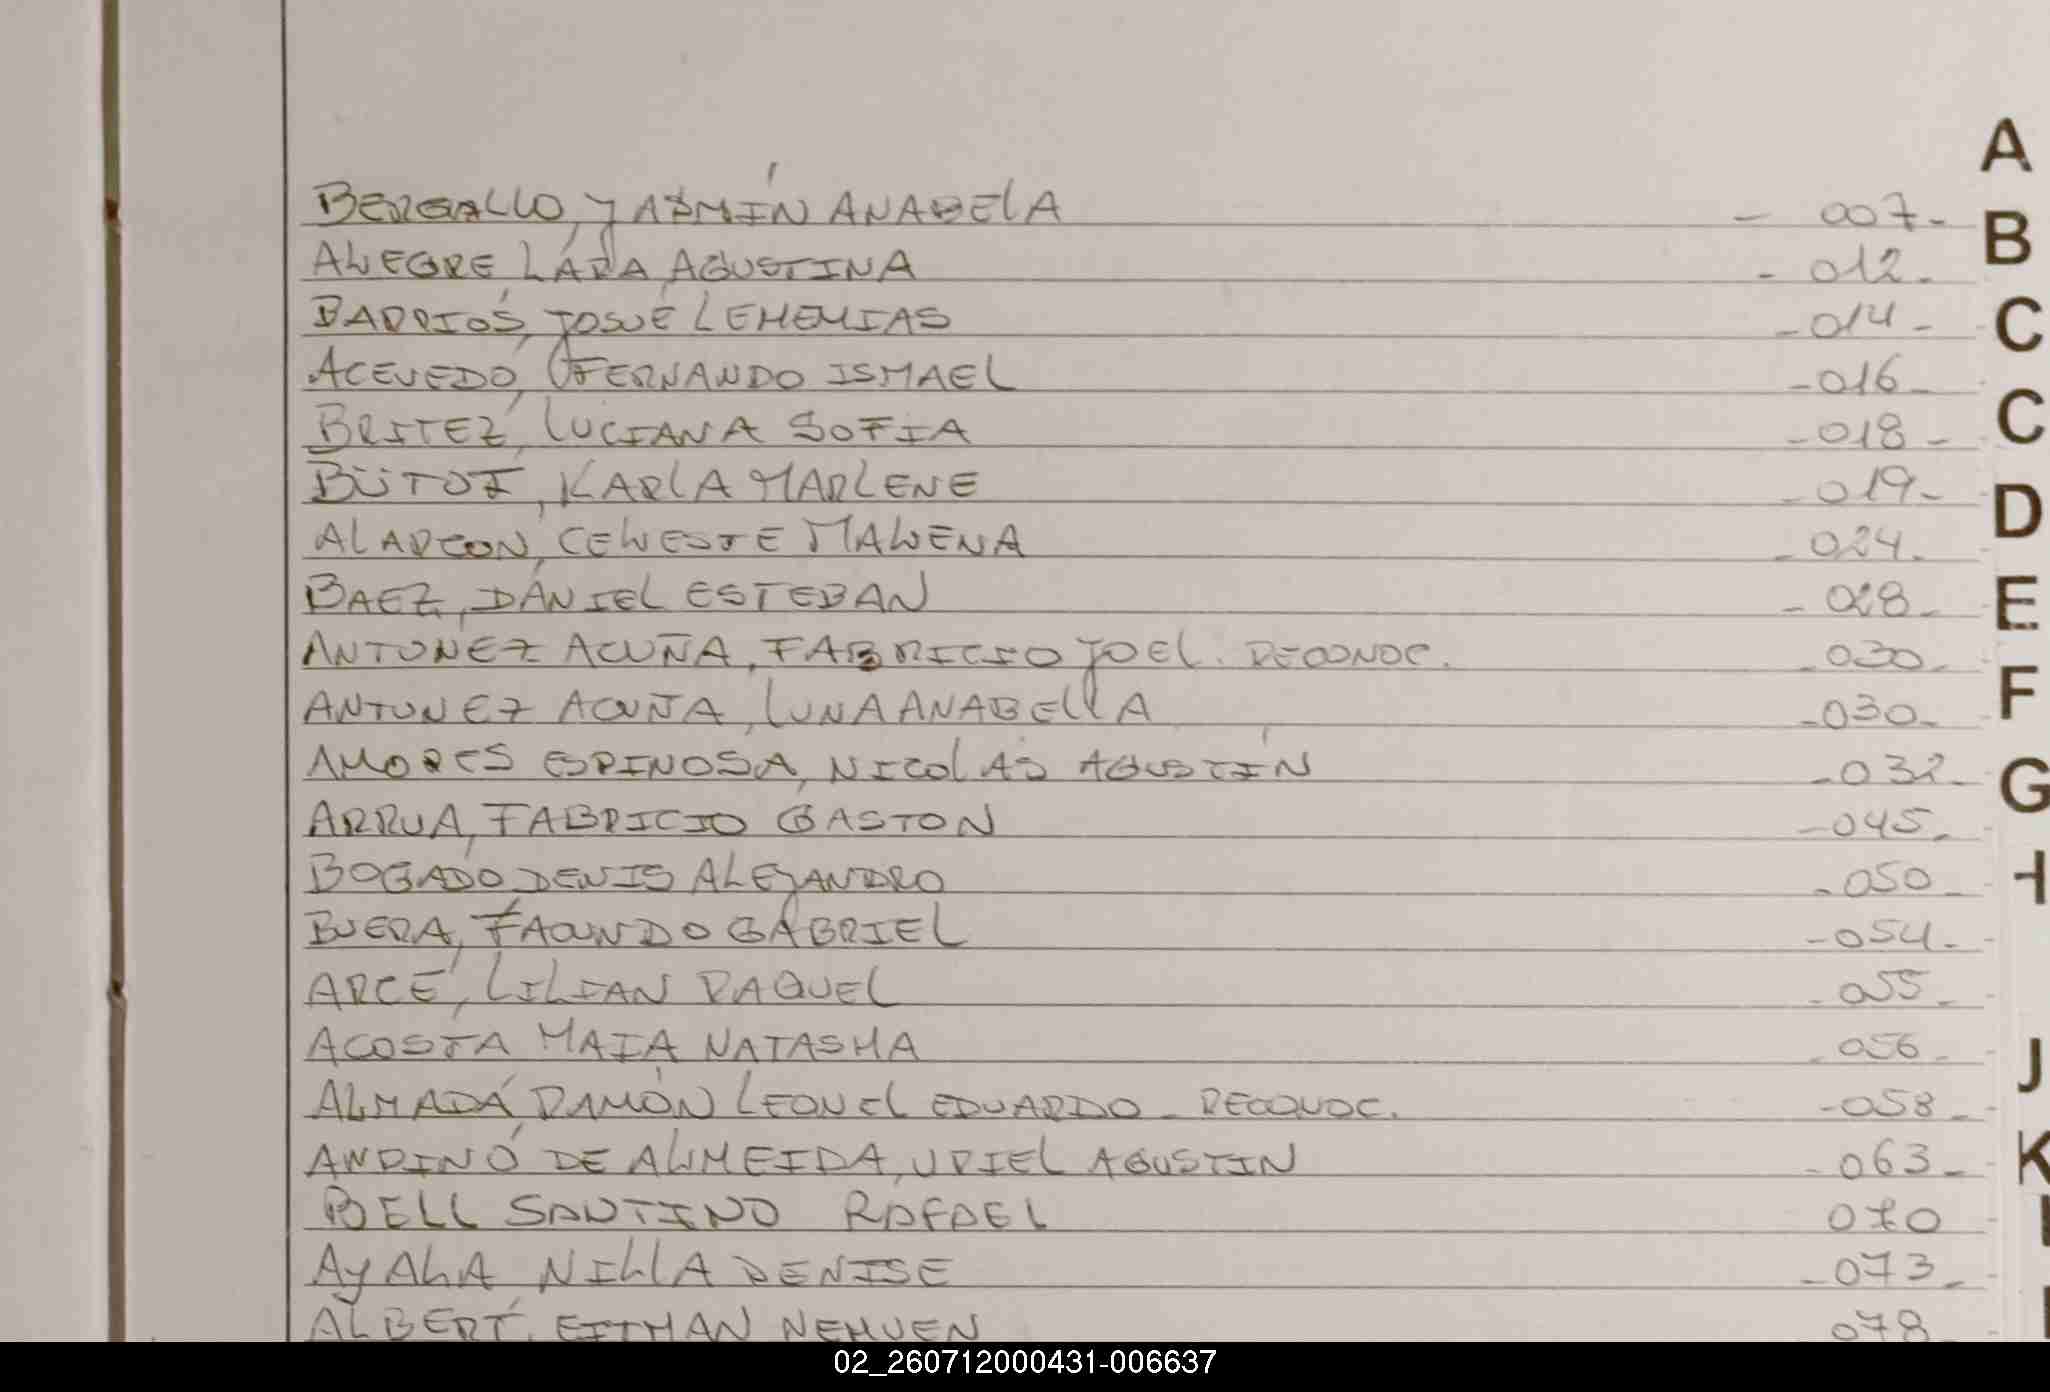 BERGALLO, YASMÍN ANABELA - 007-
ALEGRE LARA AGUSTINA - 012-
BARRIOS, JOSUÉ LEHEMIAS - 014-
ACEVEDO, FERNANDO ISMAEL - 016-
BRITEZ, LUCIANA SOFIA - 018-
BÜTOF, KARLA MARLENE - 019-
ALARCON, CELESTE MALENA - 024-
BAEZ, DANIEL ESTEBAN - 028-
ANTUNEZ ACUÑA, FABRICIO JOEL. RECONOC. - 030-
ANTUNEZ ACUÑA, LUNA ANABELLA - 030-
AMORES ESPINOSA, NICOLAS AGUSTÍN - 032-
ARRUA, FABRICIO GASTON - 045-
BOGADO DENIS ALEJANDRO - 050-
BUERA, FACUNDO GABRIEL - 054-
ARCE, LILIAN RAQUEL - 055-
ACOSTA MAIA NATASHA - 056-
ALMADA, RAMÓN LEONEL EDUARDO - RECONOC. - 058-
ANDINO DE ALMEIDA, URIEL AGUSTIN - 063-
BELL SANTINO RAFAEL 070
AYALA NILLA DENISE - 073-
ALBERT, EITHAN NEHUEN 078
A
B
C
C
D
E
F
G
H
J
K
02_260712000431-006637